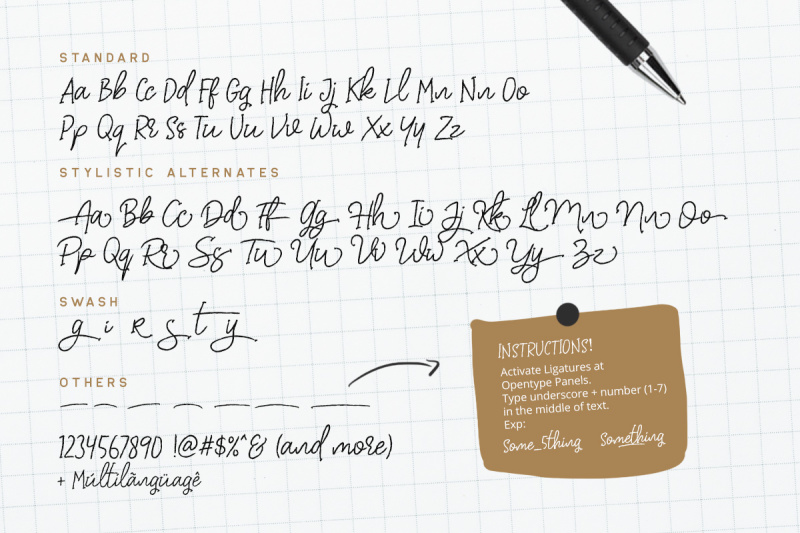 STANDARD
Aa Bb Cc Dd Ff Gg Hh Ii Jj Kk Ll Mm Nn Oo
Pp Qq Rr Ss Tu Uu Vv Ww Xx Yy Zz
STYLISTIC ALTERNATES
Aa Bb Cc Dd Ff Gg Hh Ii Jj Kk Ll Mm Nn Oo
Pp Qq Rr Ss Tu Uu Vv Ww Xx Yy Zz
SWASH
g i r s t y
OTHERS
1234567890 !@#$%^& (and more)
+ Múltìlãngüagê
INSTRUCTIONS!
Activate Ligatures at
Opentype Panels.
Type underscore + number (1-7)
in the middle of text.
Exp:
Some_5thing Something